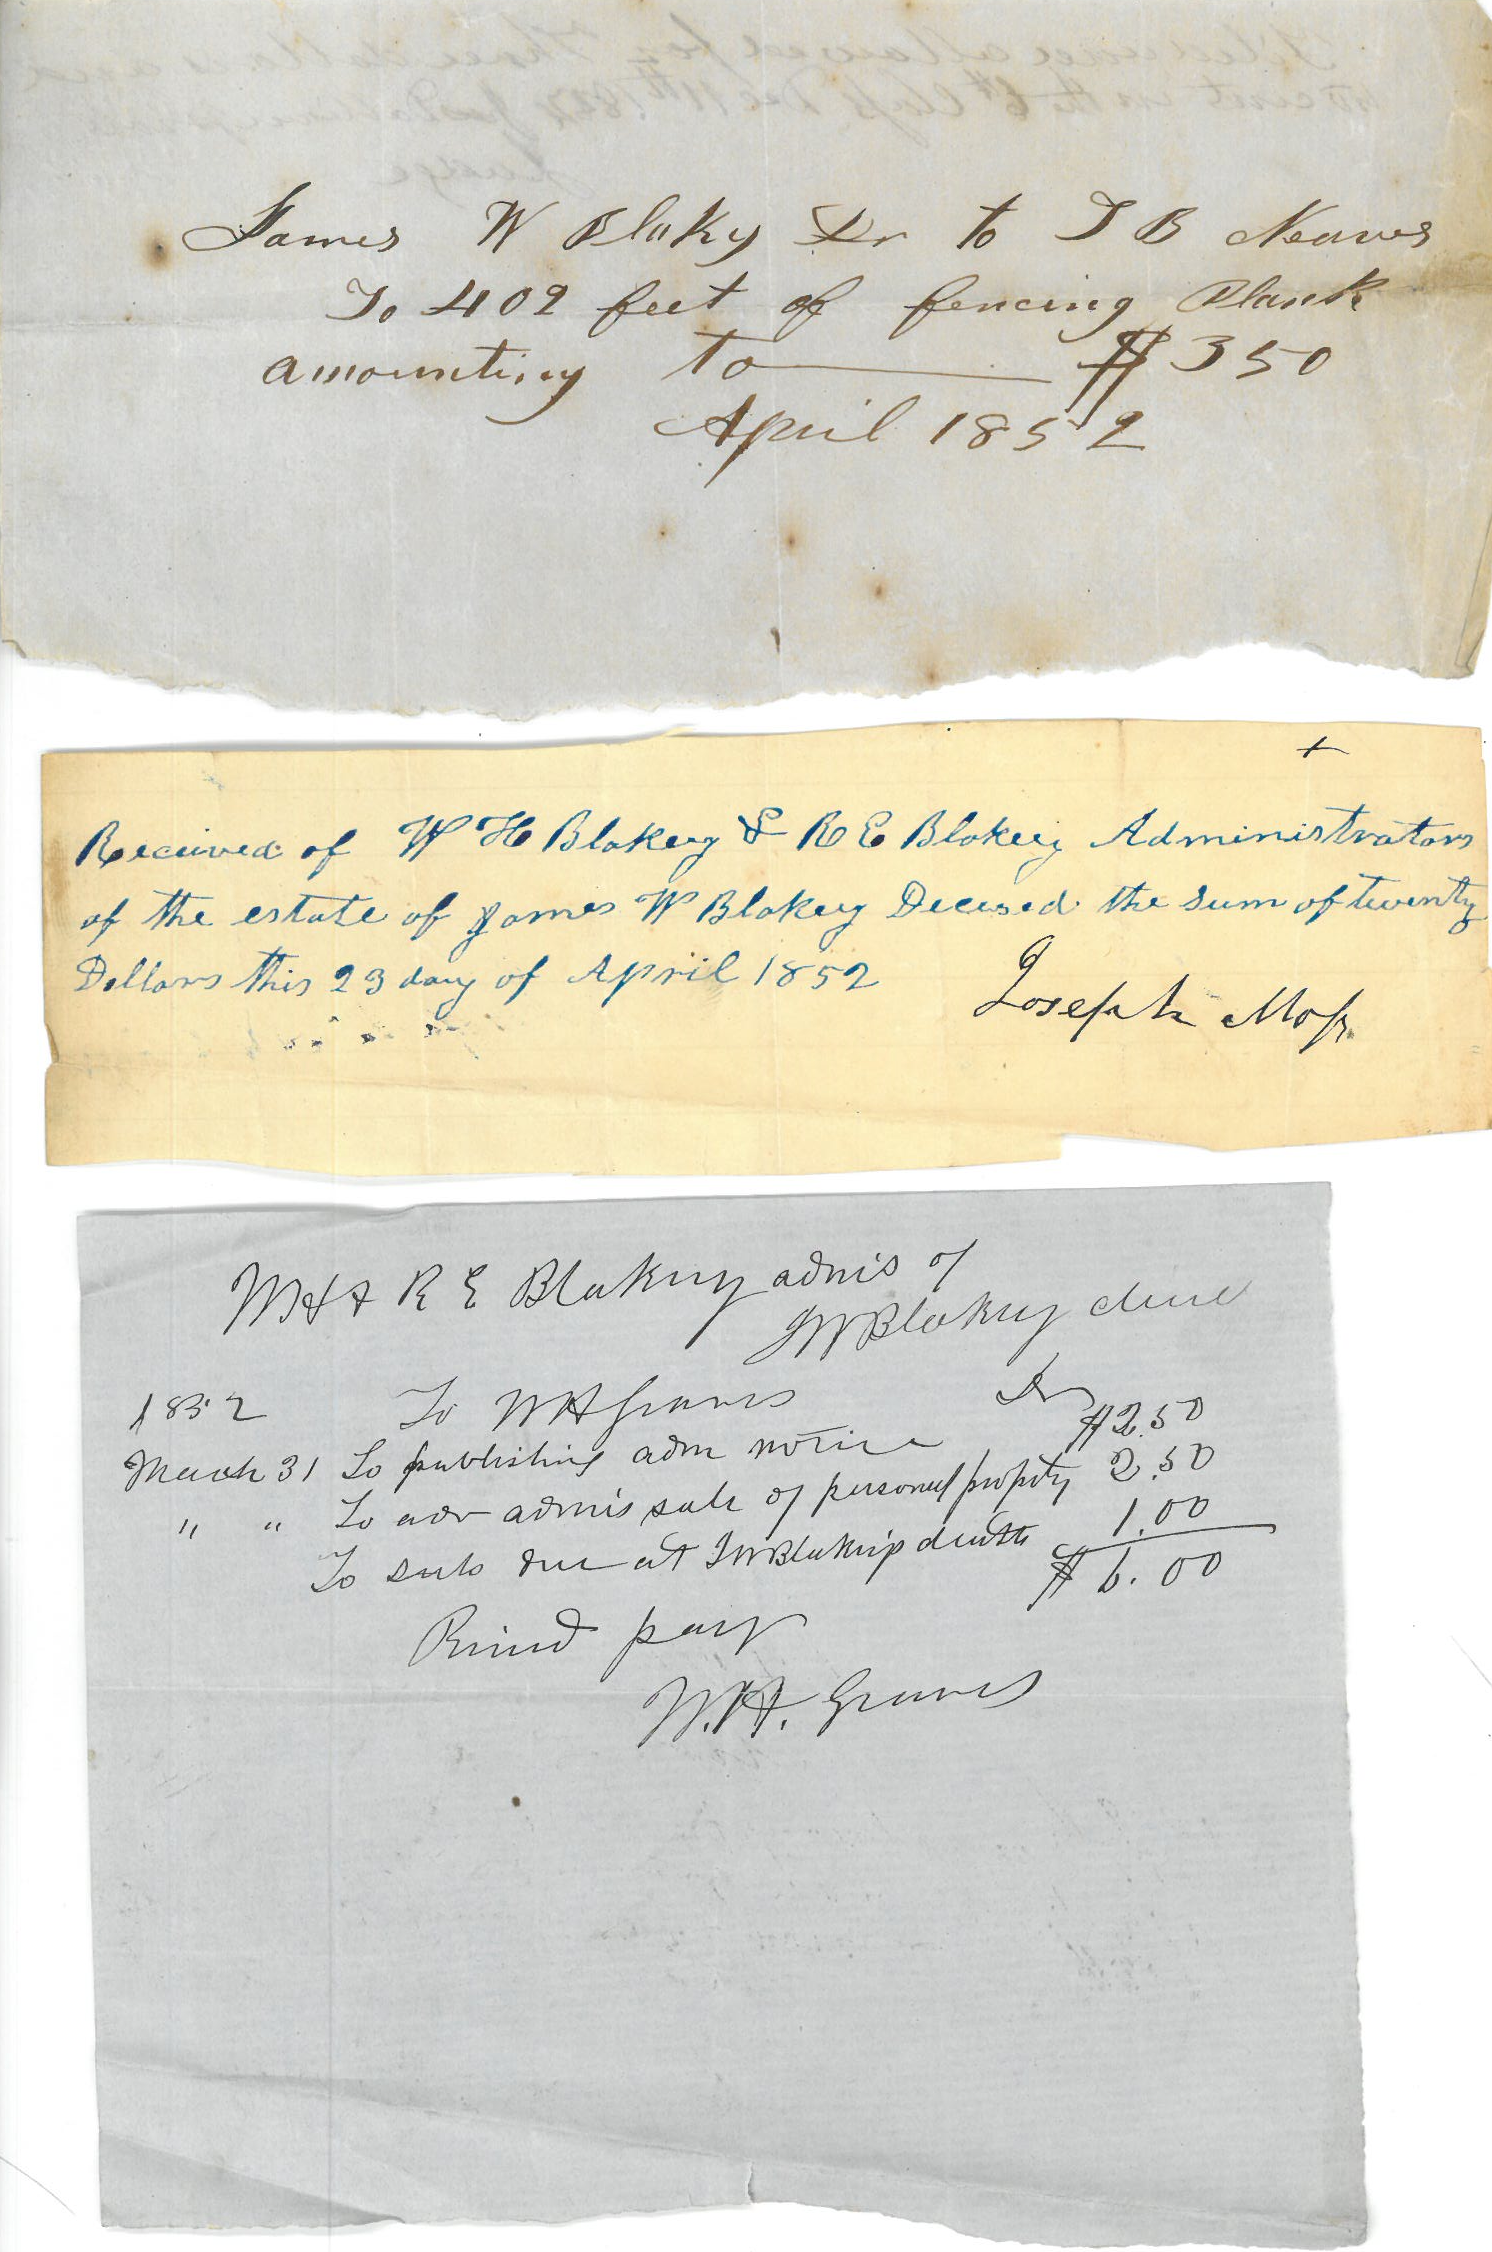 James W Blaky Dr to T B Neaves
To 402 feet of fencing Plank
amounting to $350
April 1852
+
Received of W H Blakey & R E Blakey Administrators
of the estate of James W Blakey Decesed the sum of twenty
Dollars this 23 day of April 1852
Joseph Moss
W H & R E Blakey admis of
J W Blakey
1852 To W H Graves Dr
March 31 To publishing adm notice $2.50
" " To adv admis sale of personal property 2.50
To subs due at J W Blakey's death 1.00
$6.00
pay
W. H. Graves